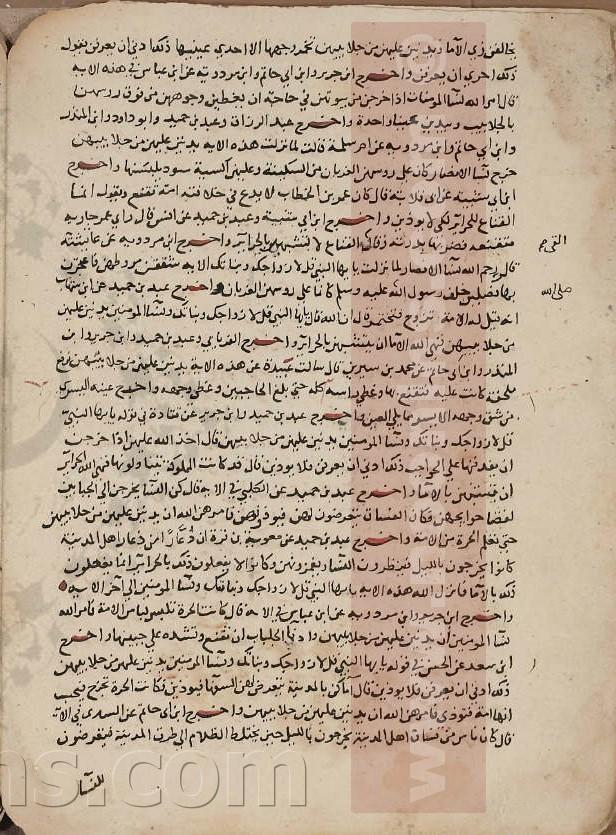 خالفن زي الاما يدنين عليهن من جلابيبهن تخمر وجهها الا احدي عينيها ذلك ادني ان يعرفن يقول
ذلك احري ان يعرفن واخرج ابن جرير وابن ابي حاتم وابن مردويه عن ابن عباس في هذه الايه
قال امر الله نسا المومنات اذا خرجن من بيوتهن في حاجة ان يغطين وجوههن من فوق روسهن
بالجلابيب ويبدين عينا واحدة واخرج عبد الرزاق وعبد بن حميد وابو داود وابن المنذر
وابن ابي حاتم وابن مردويه عن ام سلمة قالت لما نزلت هذه الايه يدنين عليهن من جلابيبهن
خرج نسا الانصار كان على روسهن الغربان من السكينة وعليهن اكسية سود يلبسنها واخرج
ابن ابي شيبة عن ابي قلابة قال كان عمر بن الخطاب لا يدع في خلافته امة تقنع ويقول انما
القناع للحراير لكي لا يوذين واخرج ابن ابي شيبة وعبد بن حميد عن انس قال راي عمر جاريه
متقنعة فضربها بدرته وقال القي القناع لا تتشبهين بالحراير واخرج ابن مردويه عن عائشة
قالت رحم الله نسا الانصار لما نزلت يا يها النبي قل لازواجك وبناتك الايه شققن مروطهن فاعتجرن
بها فصلين خلف رسول الله صلى الله عليه وسلم كانما على روسهن الغربان واخرج عبد بن حميد عن ابن شهاب
انه قيل له الامة تزوج فتخمر قال ان الله قال يا يها النبي قل لازواجك وبناتك ونسا المومنين يدنين عليهن
من جلابيبهن فنهى الله الاما ان يتشبهن بالحراير واخرج الفريابي وعبد بن حميد وابن جرير وابن
المنذر وابن ابي حاتم عن محمد بن سيرين قال سالت عبيدة عن هذه الاية يدنين عليهن من جلابيبهن فرفع
ملحفة كانت عليه فتقنع بها وغطى راسه كله حتى بلغ الحاجبين وغطى وجهه واخرج عينه اليسرى
من شق وجهه الايسر مما يلي العين واخرج عبد بن حميد وابن جرير عن قتادة في قوله يا يها النبي
قل لازواجك وبناتك ونسا المومنين يدنين عليهن من جلابيبهن قال اخذ الله عليهن اذا خرجن
ان يقنعنها على الحواجب ذلك ادني ان يعرفن فلا يوذين قال قد كانت المملوكة يتناولونها فنهى الله الحراير
ان يتشبهن بالاما واخرج عبد بن حميد عن الكلبي في الاية قال كن النسا يخرجن الى الجبابين
لقضا حوايجهن فكان الفساق يتعرضون لهن فيوذونهن فامرهن الله ان يدنين عليهن من جلابيبهن
حتى تعلم الحرة من الامة واخرج عبد بن حميد عن معوية بن قرة ان دعارا من دعار اهل المدينة
كانوا يخرجون بالليل فينظرون النسا ويغمزونهن وكانوا لا يفعلون ذلك بالحراير انما يفعلون
ذلك بالاما فانزل الله هذه الايه يا يها النبي قل لازواجك وبناتك ونسا المومنين الى آخر الايه
واخرج ابن جرير وابن مردويه عن ابن عباس في الاية قال كانت الحرة تلبس لباس الامة فامر الله
نسا المومنين ان يدنين عليهن من جلابيبهن وادنا الجلباب ان تقنع وتشده علي جبينها واخرج
ابن سعد عن الحسن في قوله يا يها النبي قل لازواجك وبناتك ونسا المومنين يدنين عليهن من جلابيبهن
ذلك ادني ان يعرفن فلا يوذين قال اماكن بالمدينة يتعرض لهن السفها فيوذين فكانت الحرة تخرج فتحسب
انها امة فتوذى فامرهن الله ان يدنين عليهن من جلابيبهن واخرج ابن ابي حاتم عن السدي في الاية
قال كان ناس من فساق اهل المدينة يخرجون بالليل حين يختلط الظلام الى طرق المدينة فيتعرضون
للنسا
ns.com